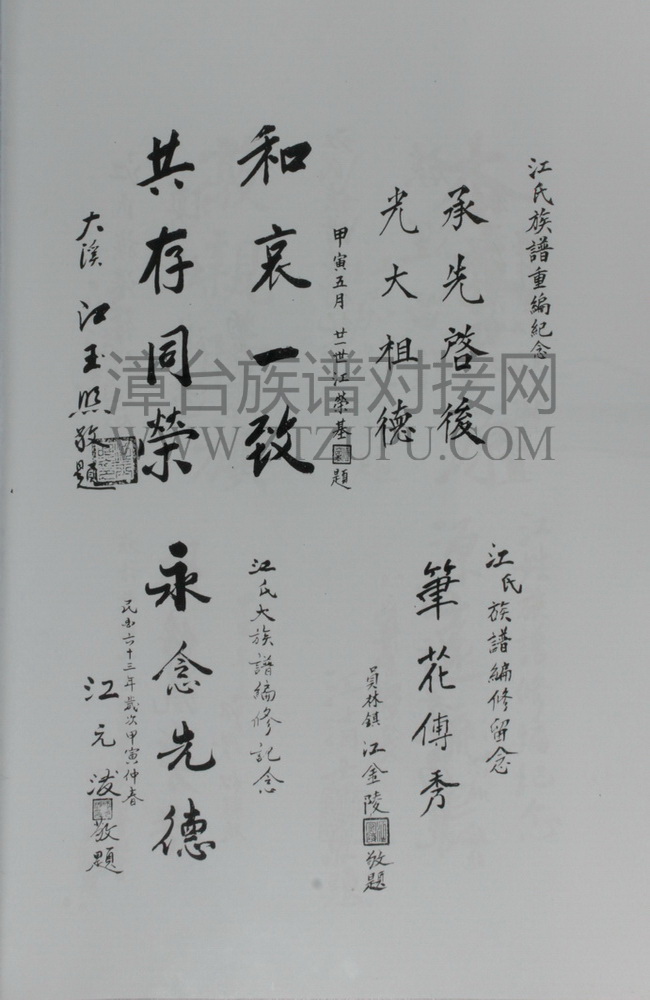 江氏族譜重編紀念
承先啓後
光大祖德
甲寅五月 廿一世江榮基題
和衷一致
共存同榮
大溪 江玉照敬題
江氏族譜編修留念
筆花傳秀
員林鎮 江金陵敬題
江氏大族譜編修記念
永念先德
民國六十三年歲次甲寅仲春
江元 敬題
漳台族谱对接网
WWW.ZTZUPU.COM